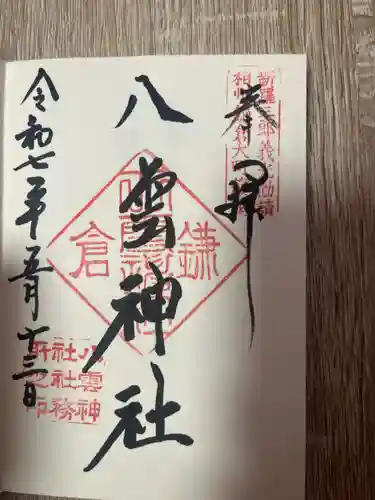 奉拝
新羅三郎義光勧請
八雲神社
鎌倉
八雲神
社社務
所之印
令和七年五月十三日